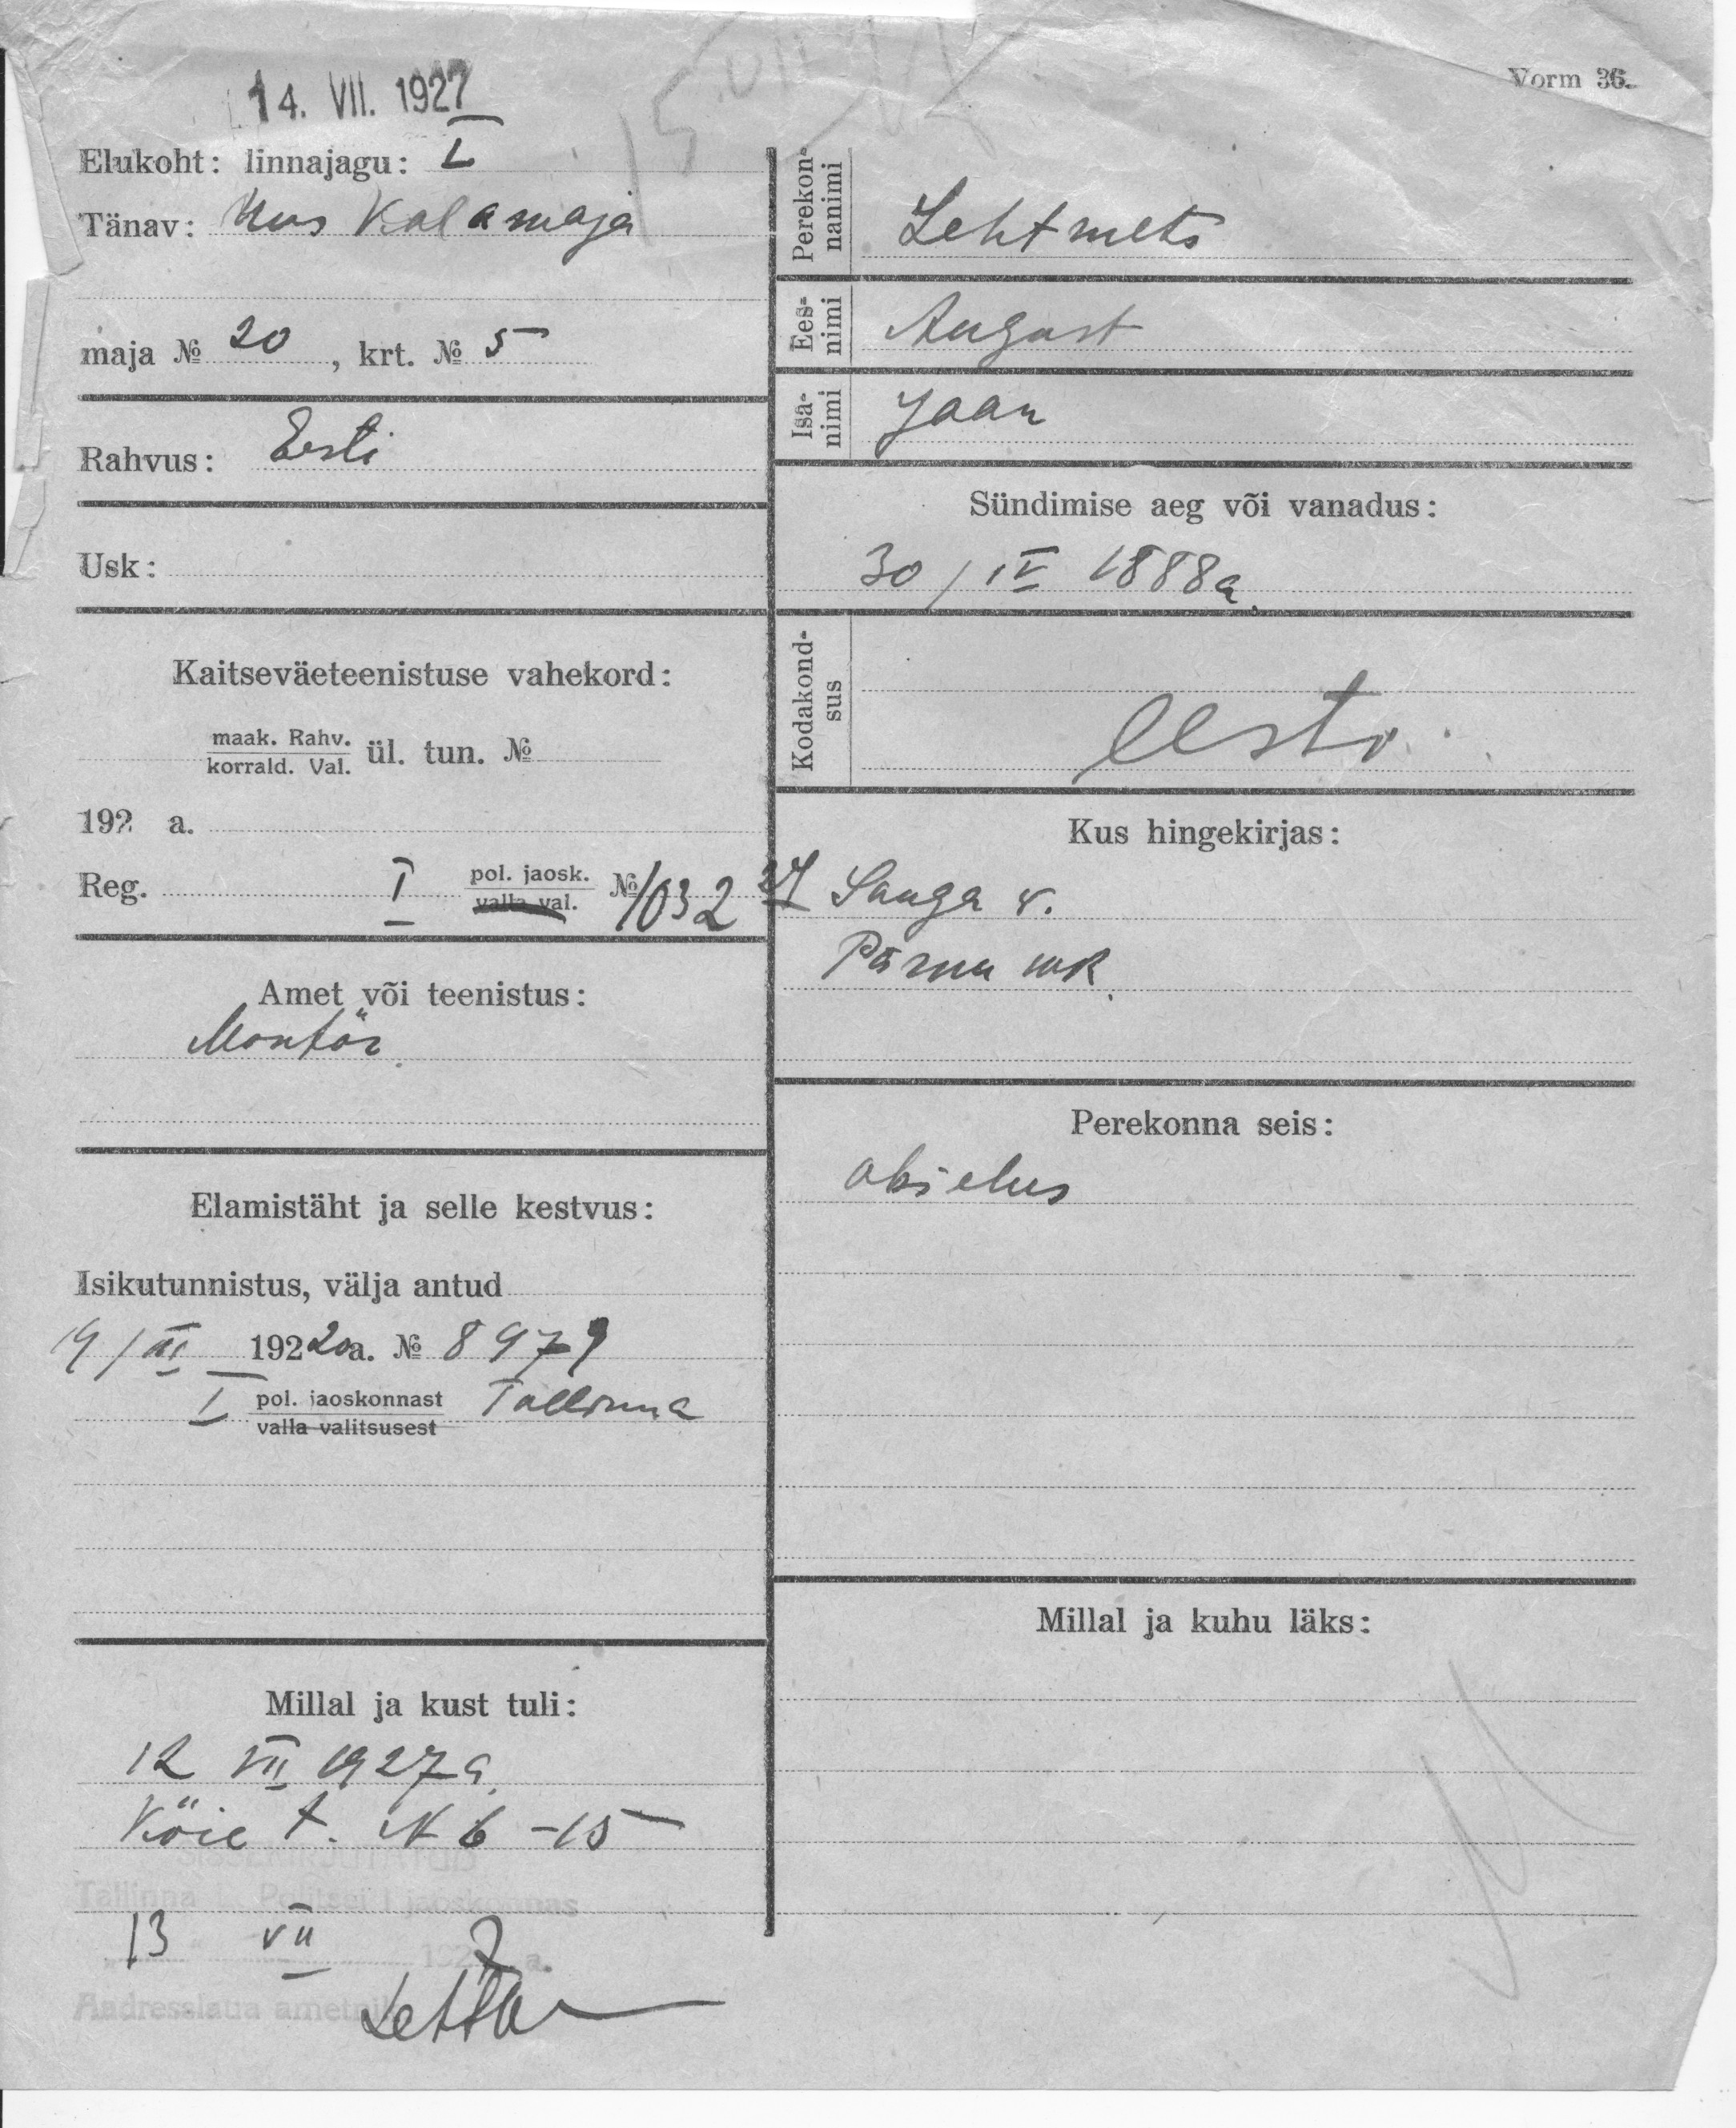 14. VII. 1927
Vorm 36.
Elukoht: linnajagu: I
Tänav: Uus Kalamaja
maja № 20, krt. № 5
Rahvus: Eesti
Usk:
Kaitseväeteenistuse vahekord:
maak. Rahv.
korrald. Val. ül. tun. №
192 a.
Reg. I pol. jaosk. № 1032 27
valla val.
Amet või teenistus:
Montör
Elamistäht ja selle kestvus:
Isikutunnistus, välja antud
19/III 19220a. № 8979
I pol. jaoskonnast Tallinna
valla valitsusest
Millal ja kust tuli:
12 VII 1927a.
Köie t. N 6 -15
SISSEKIRJUTATUD
Tallinna l. Politsei I jaoskonnas
13 VII 1927 a.
Aadresslaua ametnik
Perekonnanimi
Lehtmets
Eesnimi
August
Isanimi
Jaan
Sündimise aeg või vanadus:
30/IV 1888a.
Kodakondsus
eesti
Kus hingekirjas:
Sauga v.
Pärnu mk.
Perekonna seis:
abielus
Millal ja kuhu läks: